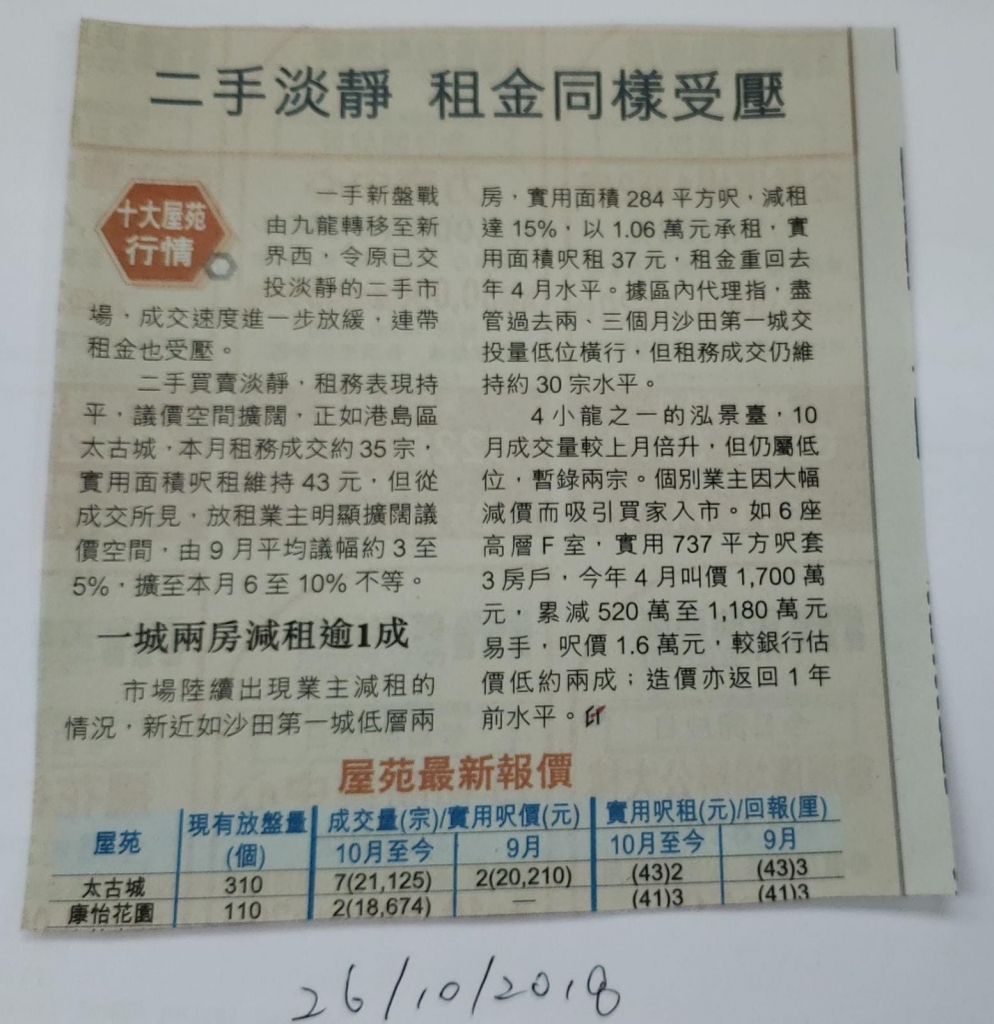 二手淡靜 租金同樣受壓
十大屋苑
行情
一手新盤戰
由九龍轉移至新
界西，令原已交
投淡靜的二手市
場，成交速度進一步放緩，連帶
租金也受壓。
二手買賣淡靜，租務表現持
平，議價空間擴闊，正如港島區
太古城，本月租務成交約35宗，
實用面積呎租維持43元，但從
成交所見，放租業主明顯擴闊議
價空間，由9月平均議幅約3至
5%，擴至本月6至10%不等。
一城兩房減租逾1成
市場陸續出現業主減租的
情況，新近如沙田第一城低層兩
房，實用面積284平方呎，減租
達15%，以1.06萬元承租，實
用面積呎租37元，租金重回去
年4月水平。據區內代理指，盡
管過去兩、三個月沙田第一城交
投量低位橫行，但租務成交仍維
持約30宗水平。
4小龍之一的泓景臺，10
月成交量較上月倍升，但仍屬低
位，暫錄兩宗。個別業主因大幅
減價而吸引買家入市。如6座
高層F室，實用737平方呎套
3房戶，今年4月叫價1,700萬
元，累減520萬至1,180萬元
易手，呎價1.6萬元，較銀行估
價低約兩成；造價亦返回1年
前水平。
屋苑最新報價
屋苑 現有放盤量(個) 成交量(宗)/實用呎價(元) 實用呎租(元)/回報(厘)
10月至今 9月 10月至今 9月
太古城 310 7(21,125) 2(20,210) (43)2 (43)3
康怡花園 110 2(18,674) — (41)3 (41)3
26/10/2018